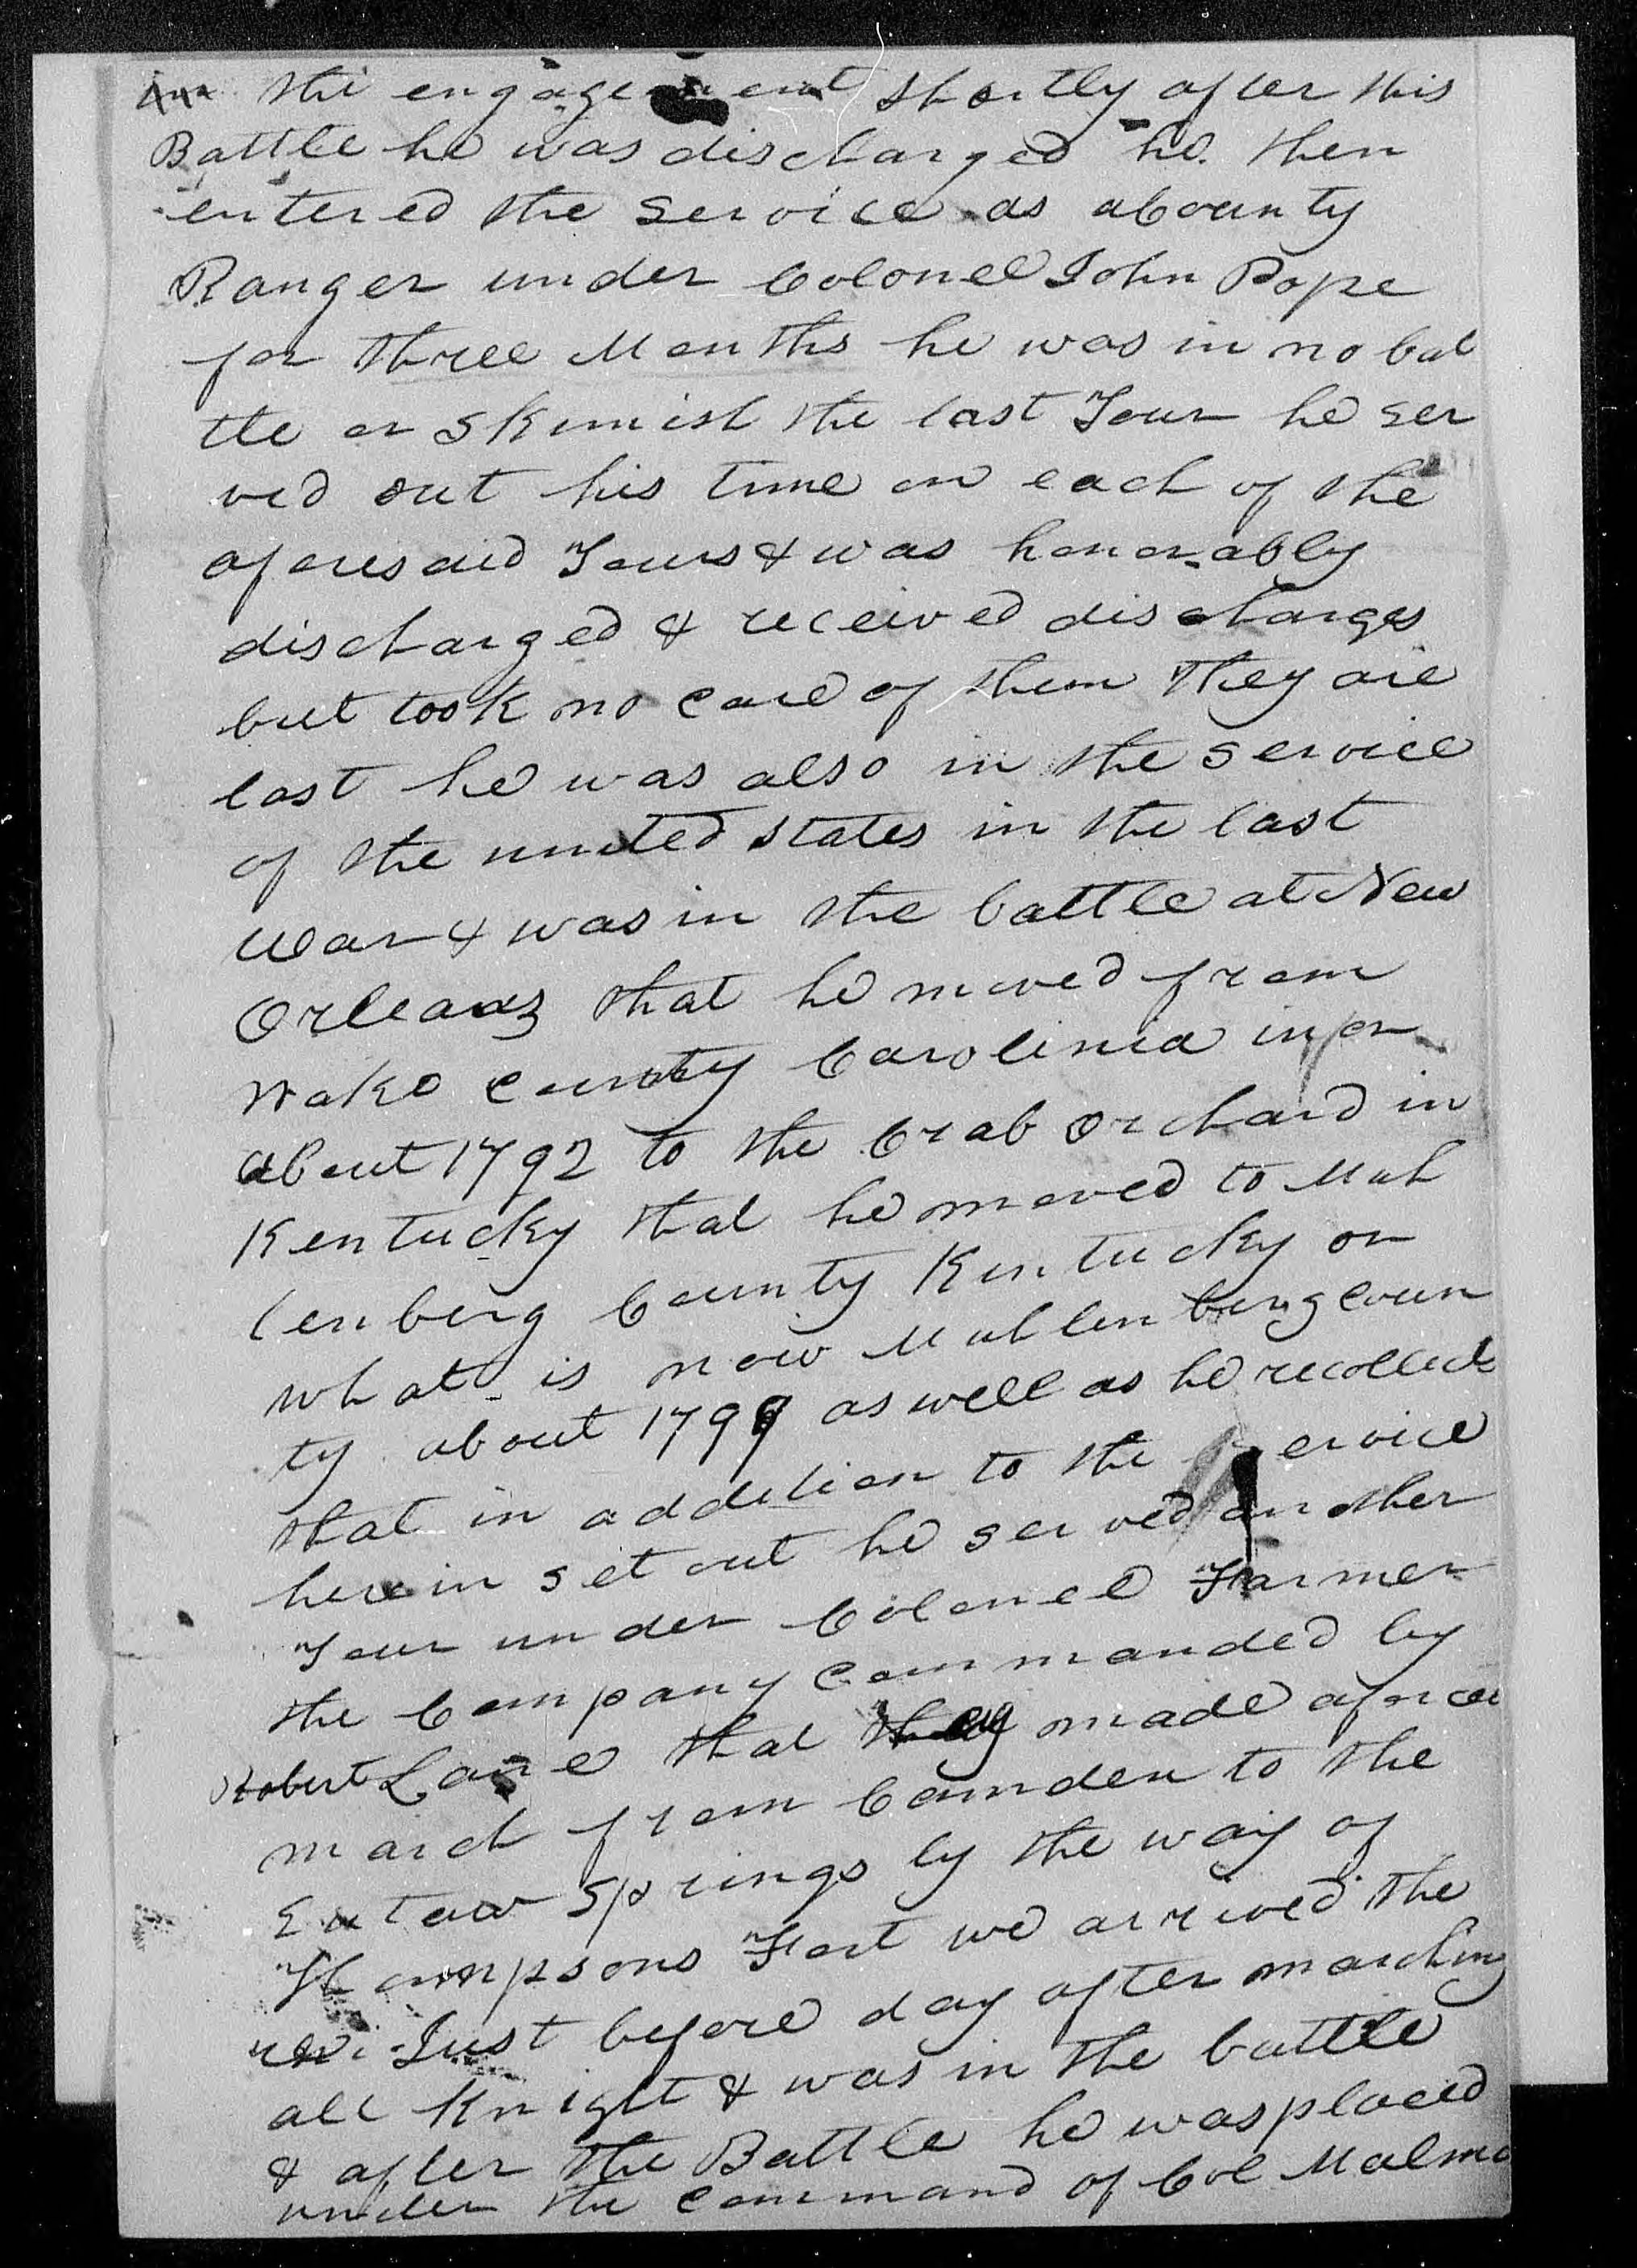 the engagement shortly after this
Battle he was discharged he then
entered the service as a County
Ranger under Colonel John Pope
for three Months he was in no bat
tle or skirmish the last Tour he ser
ved out his time on each of the
aforesaid Tours & was honorably
discharged & received discharges
but took no care of them they are
lost he was also in the service
of the united states in the last
War & was in the battle at New
Orleans that he moved from
Wake County Carolinia in or
about 1792 to the Crab Orchard in
Kentucky that he moved to Muh
lenberg County Kentucky or
what is now Muhlenberg Coun
ty about 1799 as well as he recollects
that in addition to the service
herein set out he served another
Tour under Colonel Farmer
the Company Commanded by
Robert Lane that they made a force
march from Camden to the
Eutaw Springs by the way of
Thompsons Fort we arrived the
Just before day after marching
all Knight & was in the battle
& after the Battle he was placed
under the command of Col Malma